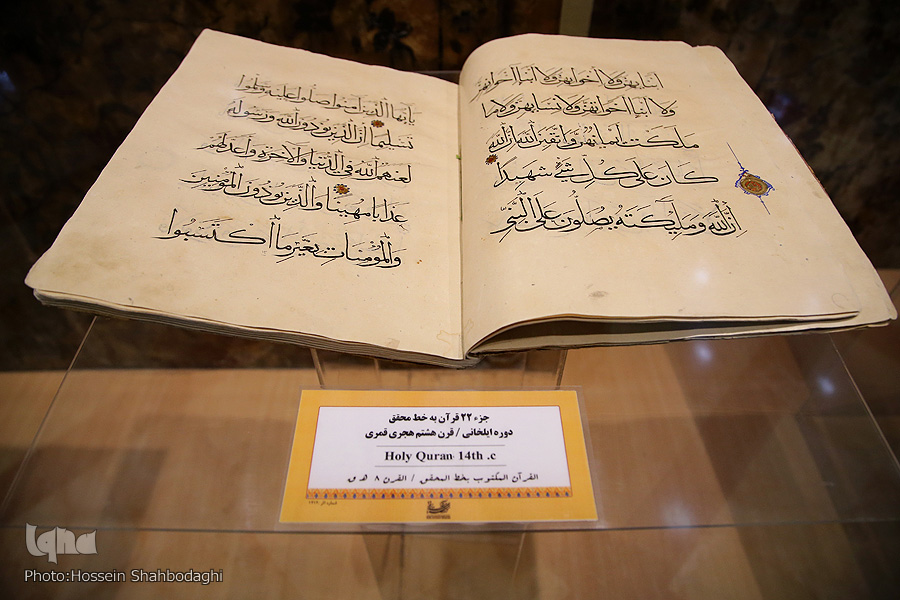 أبنائهنّ ولا إخوانهنّ ولا أبناء إخوانهنّ
ولا أبناء أخواتهنّ ولا نسائهنّ ولا
ما ملكت أيمانهنّ واتّقين اللّه إنّ اللّه
كان على كلّ شيء شهيدًا
إنّ اللّه وملئكته يصلّون على النّبيّ
يأيّها الّذين آمنوا صلّوا عليه وسلّموا
تسليما إنّ الّذين يؤذون اللّه ورسوله
لعنهم اللّه في الدّنيا والآخرة وأعدّ لهم
عذابا مهينا والّذين يؤذون المؤمنين
والمؤمنات بغير ما اكتسبوا
جزء ۲۲ قرآن به خط محقق
دوره ایلخانی / قرن هشتم هجری قمری
Holy Quran 14th .c
القرآن المكتوب بخط المحقق / القرن ۸ هـ ق
iqna
Photo:Hossein Shahbodaghi